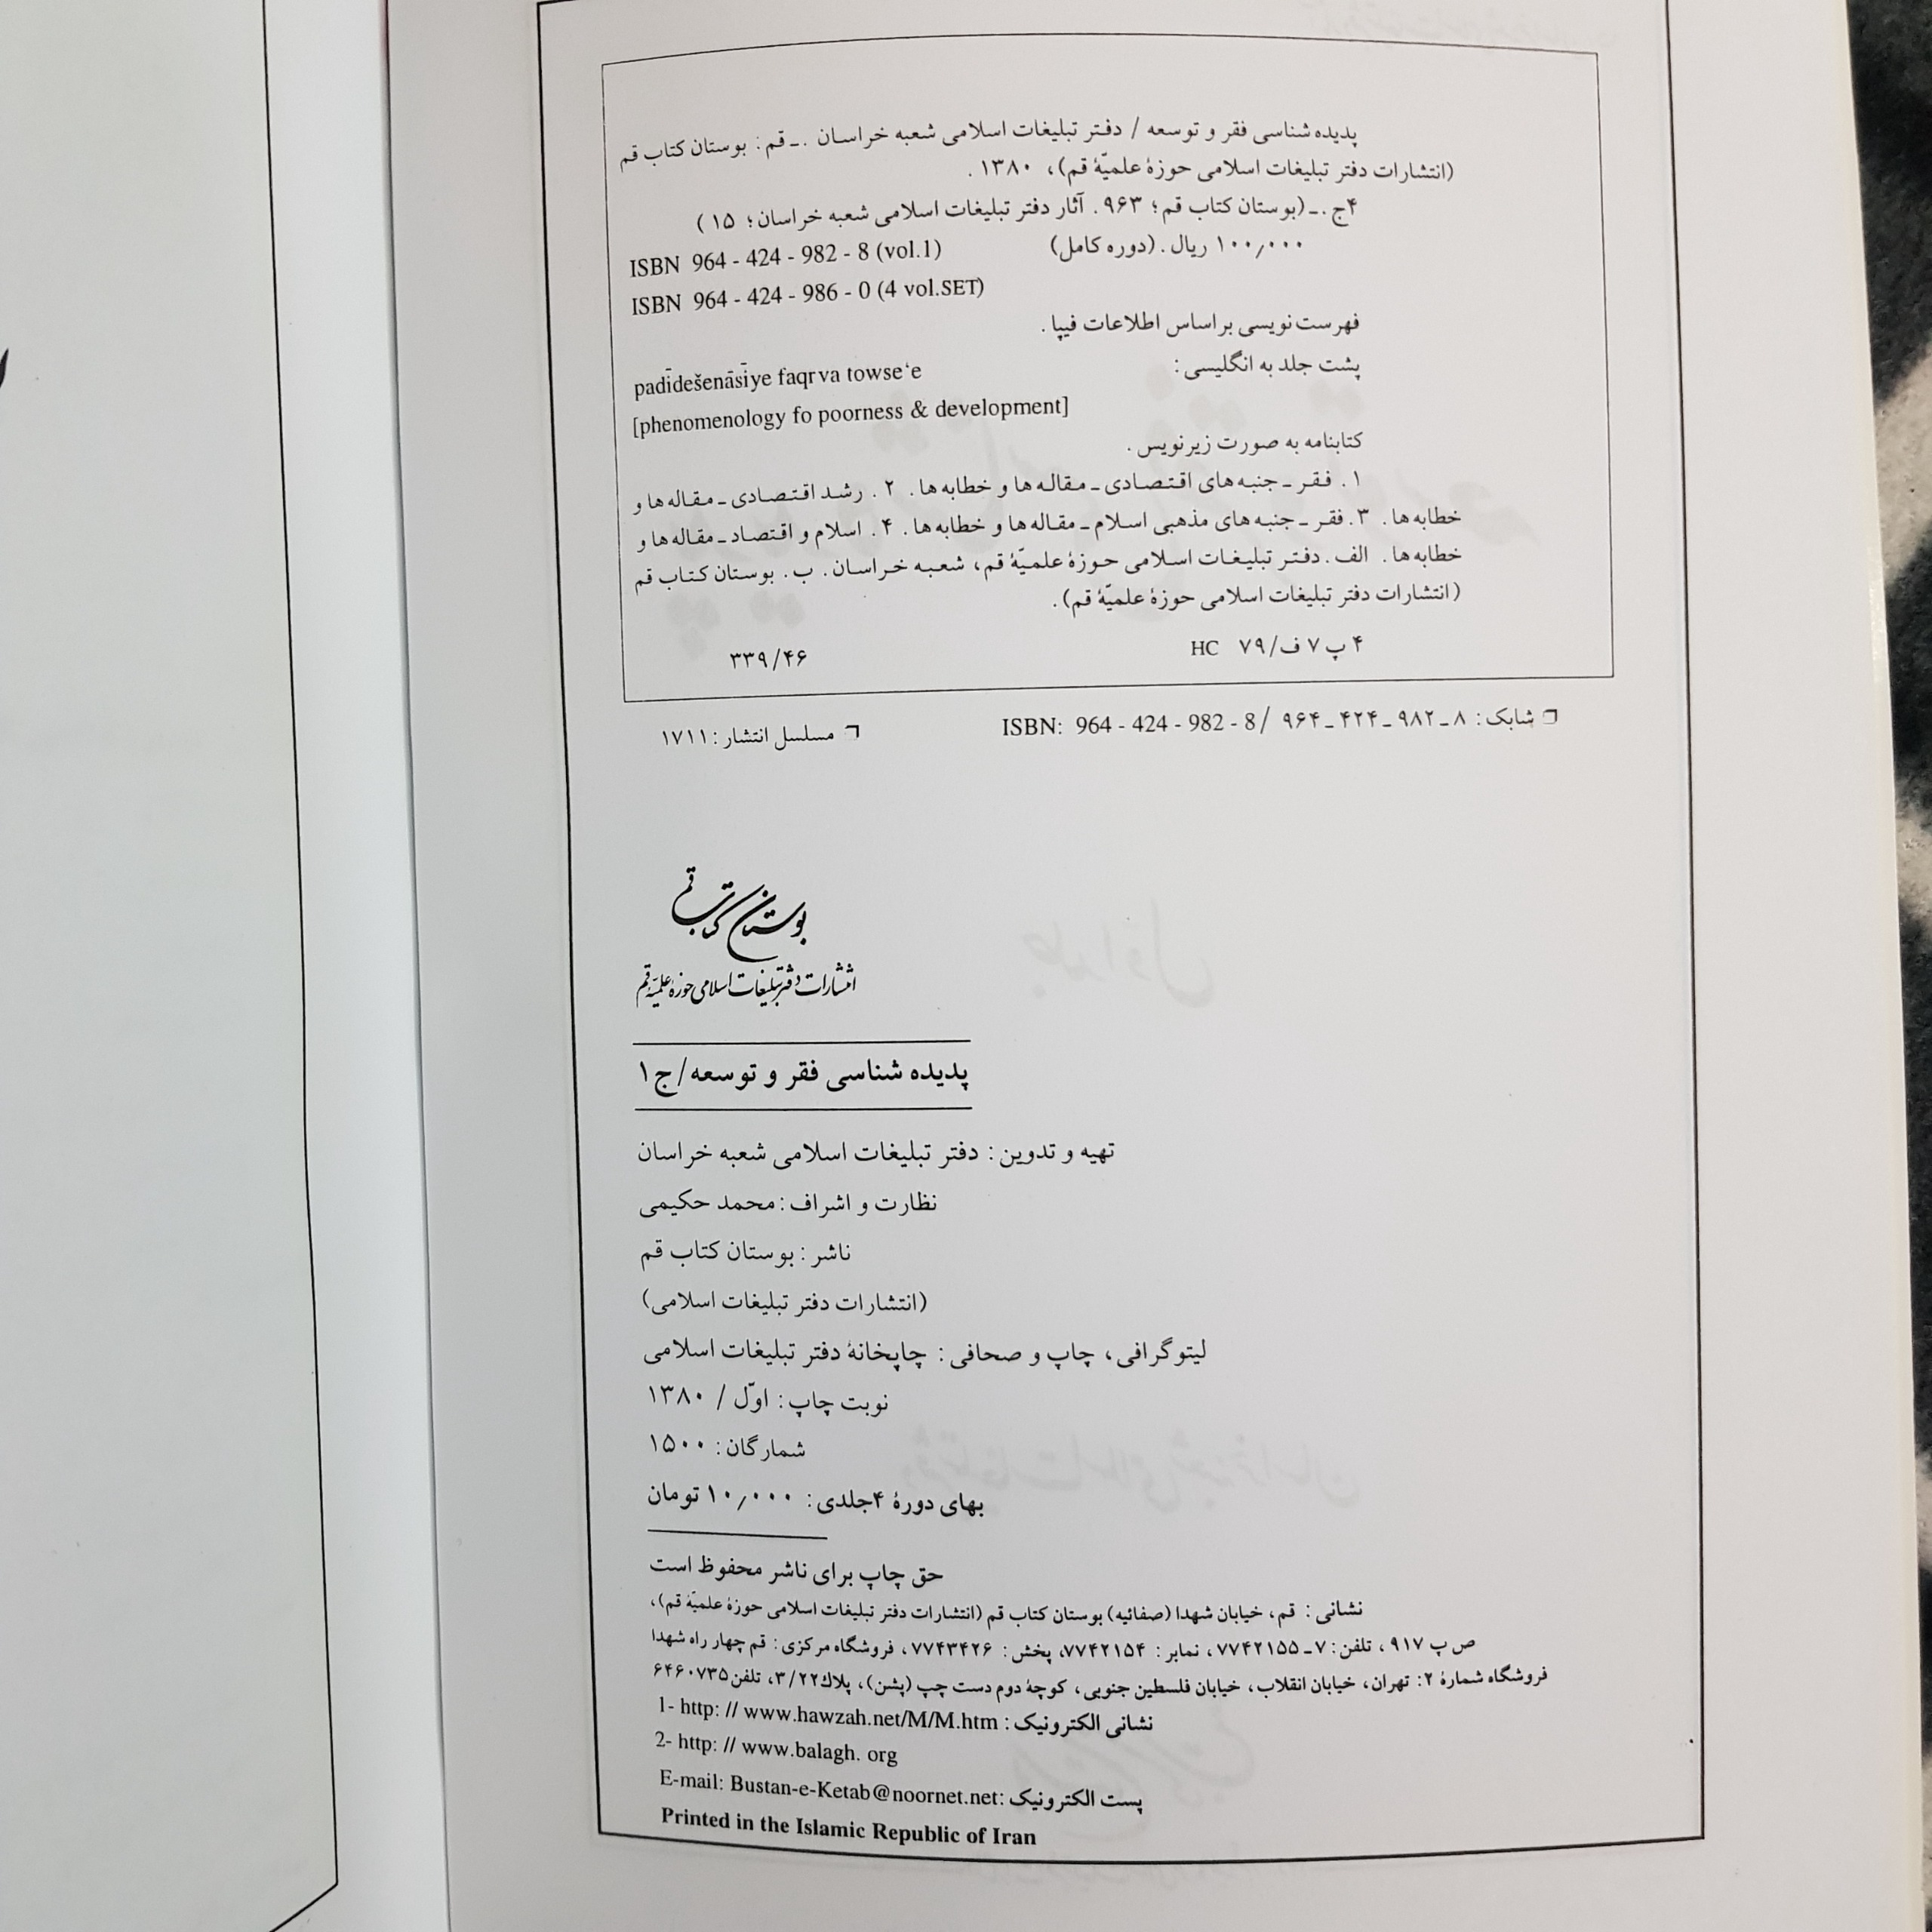 پدیده شناسی فقر و توسعه / دفتر تبلیغات اسلامی شعبه خراسان .ـ قم: بوستان کتاب قم
(انتشارات دفتر تبلیغات اسلامی حوزۀ علمیّۀ قم)، ۱۳۸۰ .
۴ج.ـ (بوستان کتاب قم؛ ۹۶۳. آثار دفتر تبلیغات اسلامی شعبه خراسان؛ ۱۵ )
۱۰۰٫۰۰۰ ریال. (دوره کامل) ISBN 964 - 424 - 982 - 8 (vol.1)
ISBN 964 - 424 - 986 - 0 (4 vol.SET)
فهرست‌نویسی براساس اطلاعات فیپا .
پشت جلد به انگلیسی: padīdešenāsīye faqrva towse‘e
[phenomenology fo poorness & development]
کتابنامه به صورت زیرنویس .
۱. فقر ـ جنبه‌های اقتصادی ـ مقاله‌ها و خطابه‌ها. ۲. رشد اقتصادی ـ مقاله‌ها و
خطابه‌ها. ۳. فقر ـ جنبه‌های مذهبی اسلام ـ مقاله‌ها و خطابه‌ها. ۴. اسلام و اقتصاد ـ مقاله‌ها و
خطابه‌ها. الف. دفتر تبلیغات اسلامی حوزۀ علمیّۀ قم، شعبه خراسان. ب. بوستان کتاب قم
(انتشارات دفتر تبلیغات اسلامی حوزۀ علمیّۀ قم).
۴ پ ۷ ف/ ۷۹ HC ۳۳۹/۴۶
❐ شابک: ۸ ـ ۹۸۲ ـ ۴۲۴ ـ ۹۶۴ / ISBN: 964 - 424 - 982 - 8 ❐ مسلسل انتشار: ۱۷۱۱
بوستان کتاب قم
انتشارات دفتر تبلیغات اسلامی حوزۀ علمیّۀ قم
پدیده شناسی فقر و توسعه/ ج ۱
تهیه و تدوین: دفتر تبلیغات اسلامی شعبه خراسان
نظارت و اشراف: محمد حکیمی
ناشر: بوستان کتاب قم
(انتشارات دفتر تبلیغات اسلامی)
لیتوگرافی، چاپ و صحافی: چاپخانۀ دفتر تبلیغات اسلامی
نوبت چاپ: اوّل / ۱۳۸۰
شمارگان: ۱۵۰۰
بهای دورۀ ۴جلدی: ۱۰٫۰۰۰ تومان
حق چاپ برای ناشر محفوظ است
نشانی: قم، خیابان شهدا (صفائیه) بوستان کتاب قم (انتشارات دفتر تبلیغات اسلامی حوزۀ علمیّۀ قم)،
ص پ ۹۱۷، تلفن: ۷ـ ۷۷۴۲۱۵۵، نمابر: ۷۷۴۲۱۵۴، پخش: ۷۷۴۳۴۲۶، فروشگاه مرکزی: قم چهار راه شهدا
فروشگاه شمارۀ ۲: تهران، خیابان انقلاب، خیابان فلسطین جنوبی، کوچۀ دوم دست چپ (پشن)، پلاک۳/۲۲، تلفن۶۴۶۰۷۳۵
نشانی الکترونیک : 1- http: // www.hawzah.net/M/M.htm
2- http: // www.balagh. org
پست الکترونیک :E-mail: Bustan-e-Ketab@noornet.net
Printed in the Islamic Republic of Iran